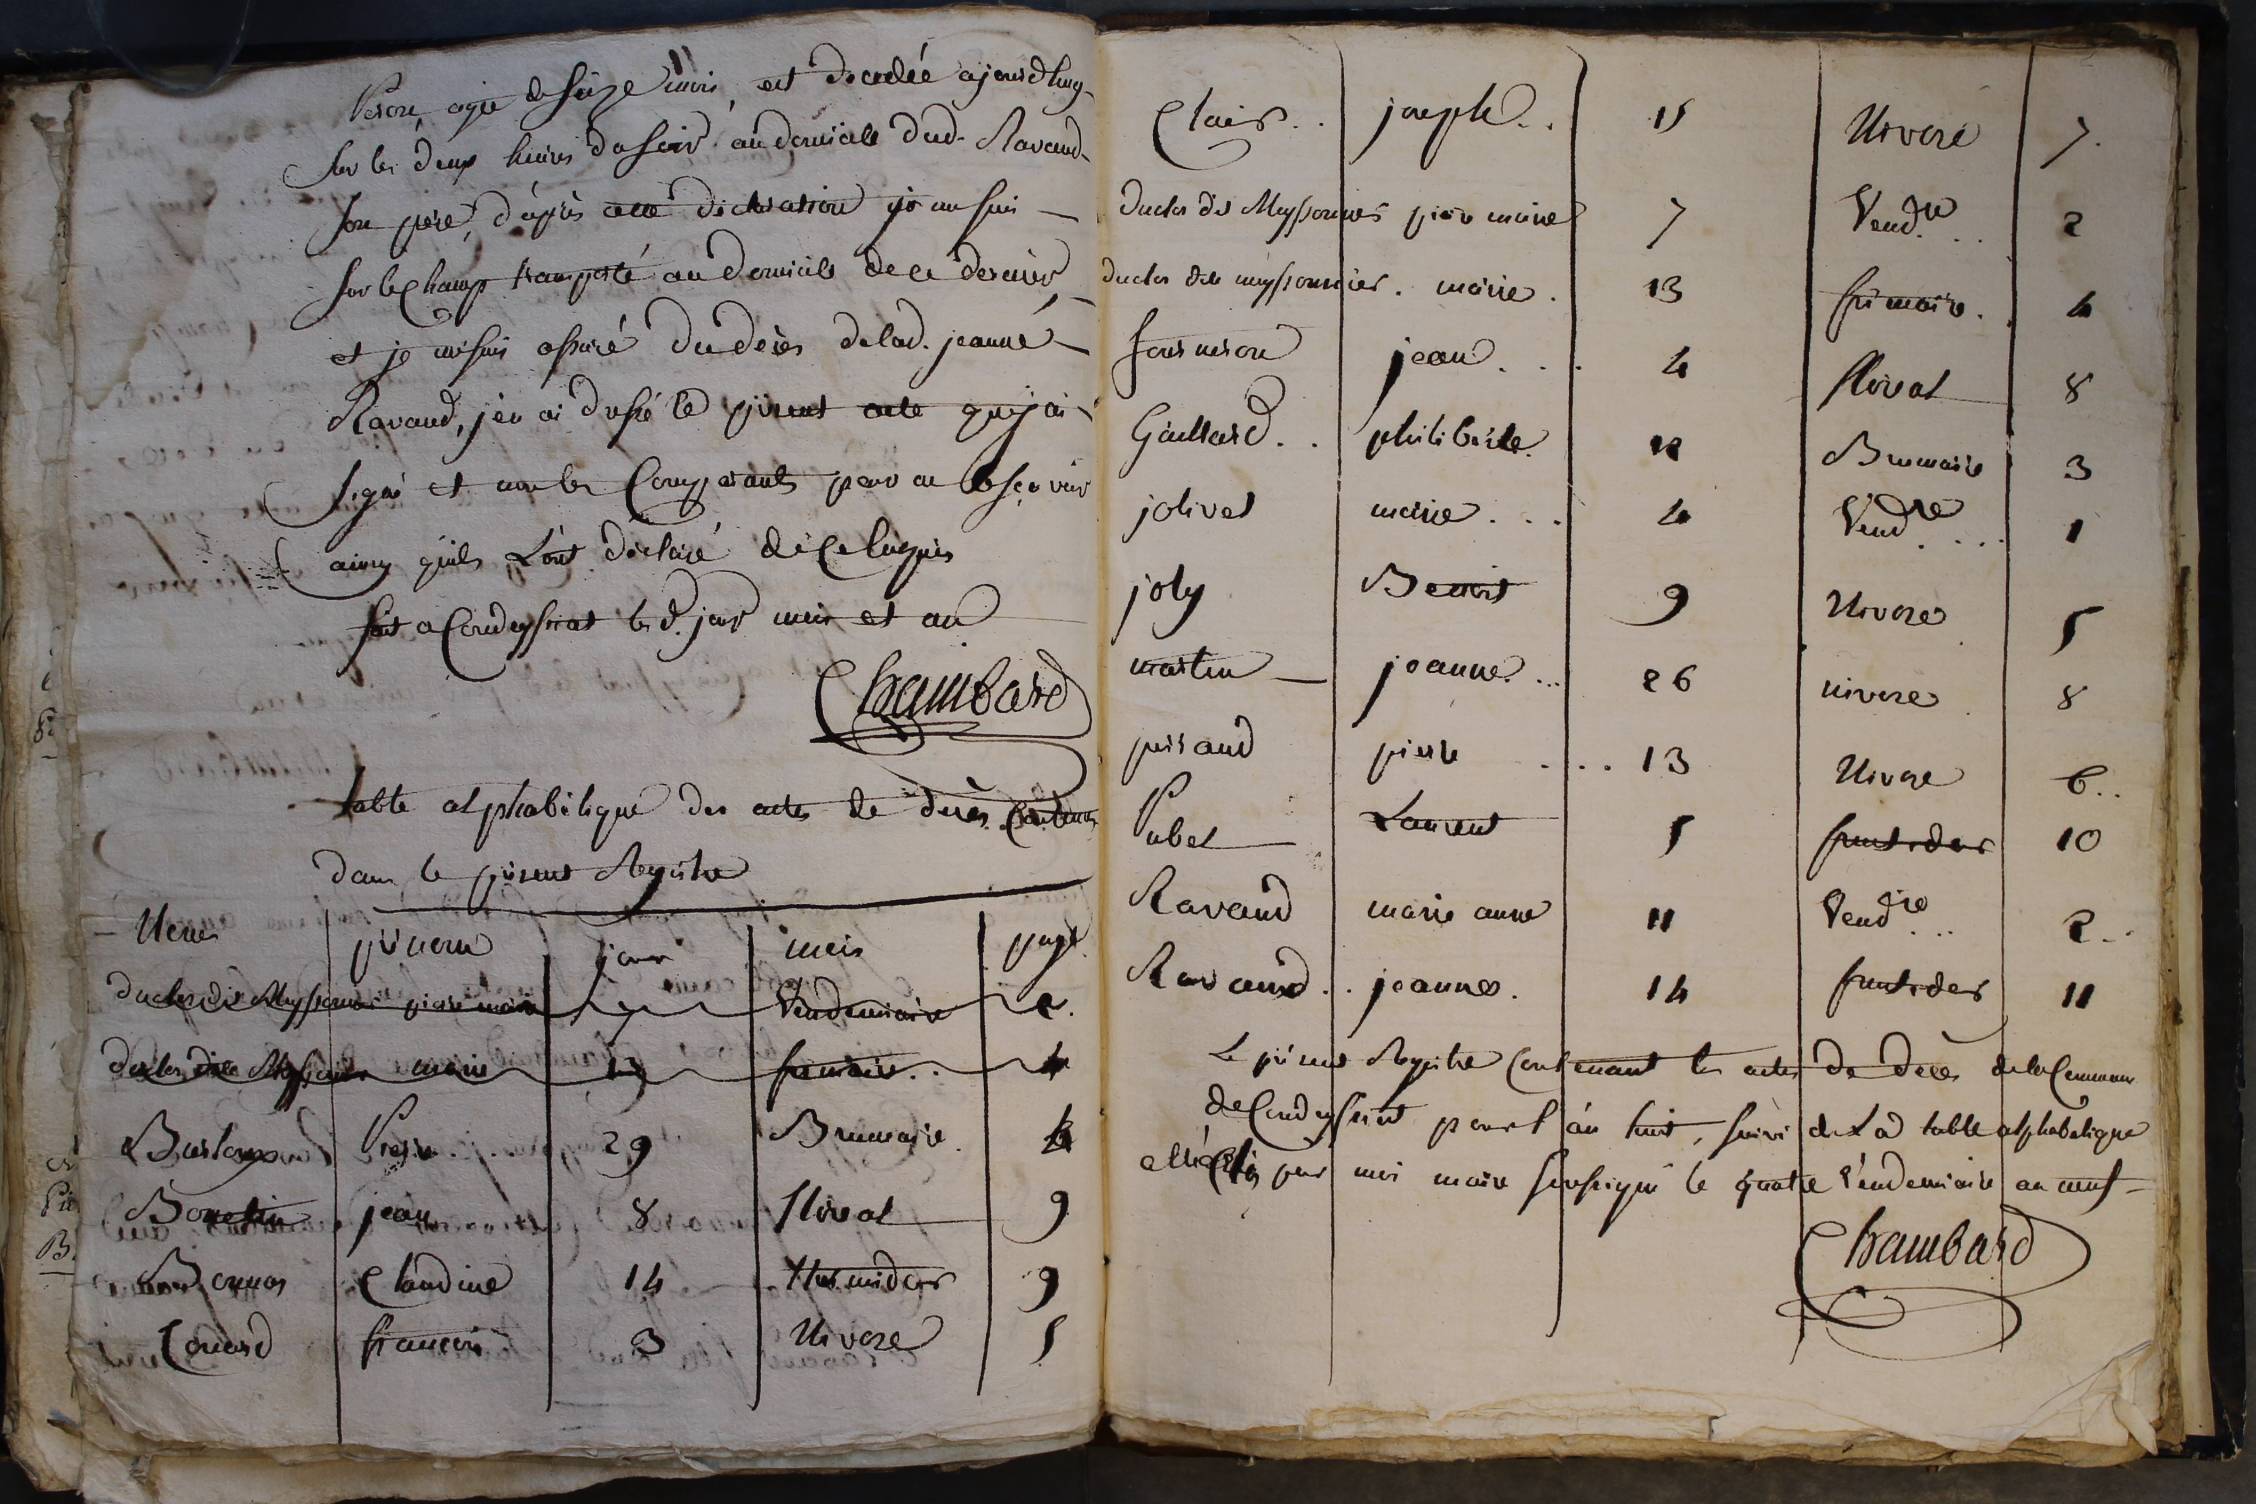 11
Perou agée de seize mois, est decedée ajourdhuy
sur les deux heures du soir au domicile dud. Ravaud
son pere, d'après cette declaration je me suis
sur le champ transporté au domicile de ce dernier
et je me suis assuré du decès de lad. jeanne
Ravaud, j'en ai dressé le present acte que j'ai
signé et non les Comparants pour ne le sçavoir
ainsy qu'ils L'ont déclaré de ce Enquis
fait a Condeyssiat les d. jour mois et an
Chambard
table alphabétique des actes de décès Contenus
dans le présent Registre
Noms prénom jour mois page
duclos dit Meyssonnier pierre marie 7 Vendemiaire 2.
duclos dite Meyssonnier marie 13 frimaire. 4
Burtoux Pierre 29 Brumaire. 4
Bonetin jean 8 floreal 9
Bonnos Claudine 14 thermidor 9
Conard francois 3 Nivose 5
Clair. . joseph. . 15 Nivose 7.
duclos dit Meyssonnier pierre marie 7 Vend.re . . 2
duclos dite meyssonnier. marie. 13 frimaire. . 4
fournerou jean. . . 4 floreal 8
Gaillard. . philiberte. 12 Brumaire 3
jolivet marie. . . 4 Vend.re . . . 1
joly Benoit 9 Nivose 5
martin jeanne. ... 26 nivose 8
perraud pierre . . . 13 Nivose 6..
Pubet Laurent 5 fructidor 10
Ravaud marie anne 11 Vend.re ... 2..
Ravaud. . jeanne. 14 fructidor 11
Le présent Registre Contenant les actes de décès de la Commune
de Condeyssiat pour l'an huit, suivi de La table alphabetique
a été Clos par moi maire soussigné le quatre Vendemiaire an neuf
Chambard